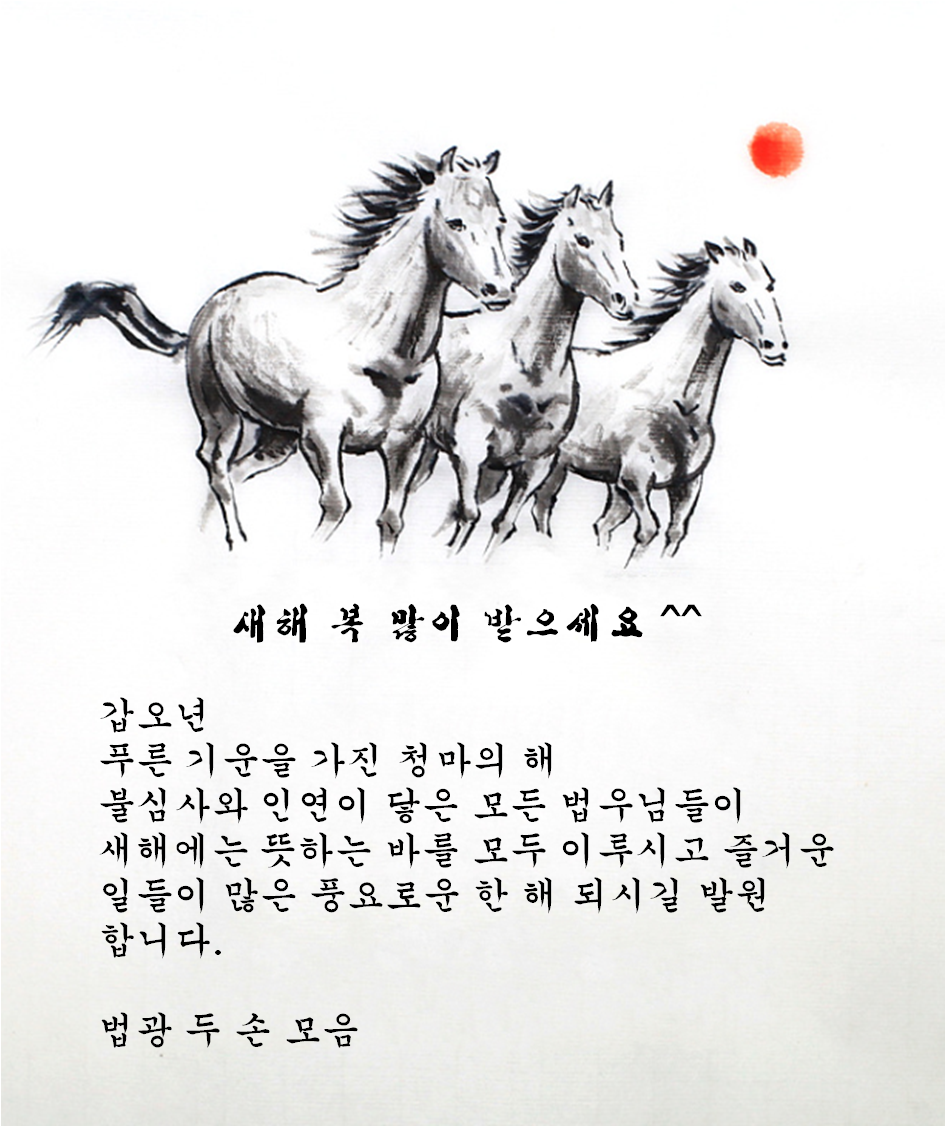 새해 복 많이 받으세요 ^^
갑오년
푸른 기운을 가진 청마의 해
불심사와 인연이 닿은 모든 법우님들이
새해에는 뜻하는 바를 모두 이루시고 즐거운
일들이 많은 풍요로운 한 해 되시길 발원
합니다.
법광 두 손 모음